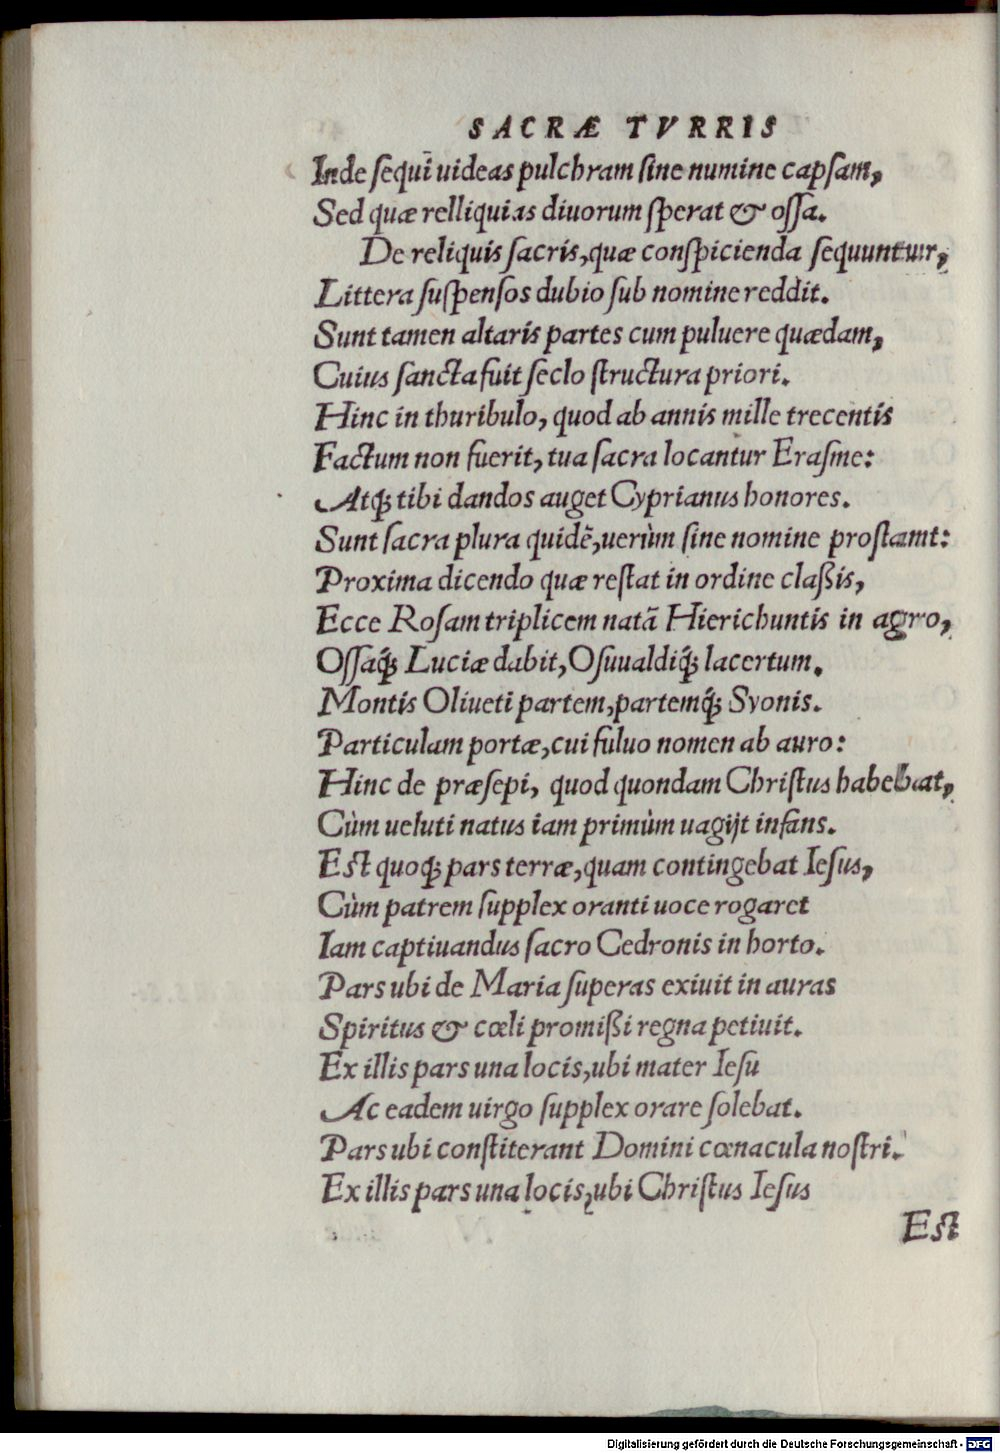 SACRÆ TVRRIS
Inde sequi᷉ uideas pulchram sine numine capsam,
Sed quæ relliquias diuorum sperat & ossa.
De reliquis sacris, quæ conspicienda sequuntur,
Littera suspensos dubio sub nomine reddit.
Sunt tamen altaris partes cum puluere quædam,
Cuius sancta fuit seclo structura priori.
Hinc in thuribulo, quod ab annis mille trecentis
Factum non fuerit, tua sacra locantur Erasme:
Atq́; tibi dandos auget Cyprianus honores.
Sunt sacra plura quidẽ, uerùm sine nomine prostamt:
Proxima dicendo quæ restat in ordine claßis,
Ecce Rosam triplicem natã Hierichuntis in agro,
Ossaq́; Luciæ dabit, Osuualdiq́; lacertum.
Montis Oliueti partem, partemq́; Syonis.
Particulam portæ, cui fuluo nomen ab auro:
Hinc de præsepi, quod quondam Christus habebat,
Cùm ueluti natus iam primùm uagijt infans.
Est quoq; pars terræ, quam contingebat Iesus,
Cùm patrem supplex oranti uoce rogaret
Iam captiuandus sacro Cedronis in horto.
Pars ubi de Maria superas exiuit in auras
Spiritus & cœli promißi regna petiuit.
Ex illis pars una locis, ubi mater Iesu
Ac eadem uirgo supplex orare solebat.
Pars ubi constiterant Domini cœnacula nostri.
Ex illis pars una locis, ubi Christus Iesus
Est
Digitalisierung gefördert durch die Deutsche Forschungsgemeinschaft - DFG